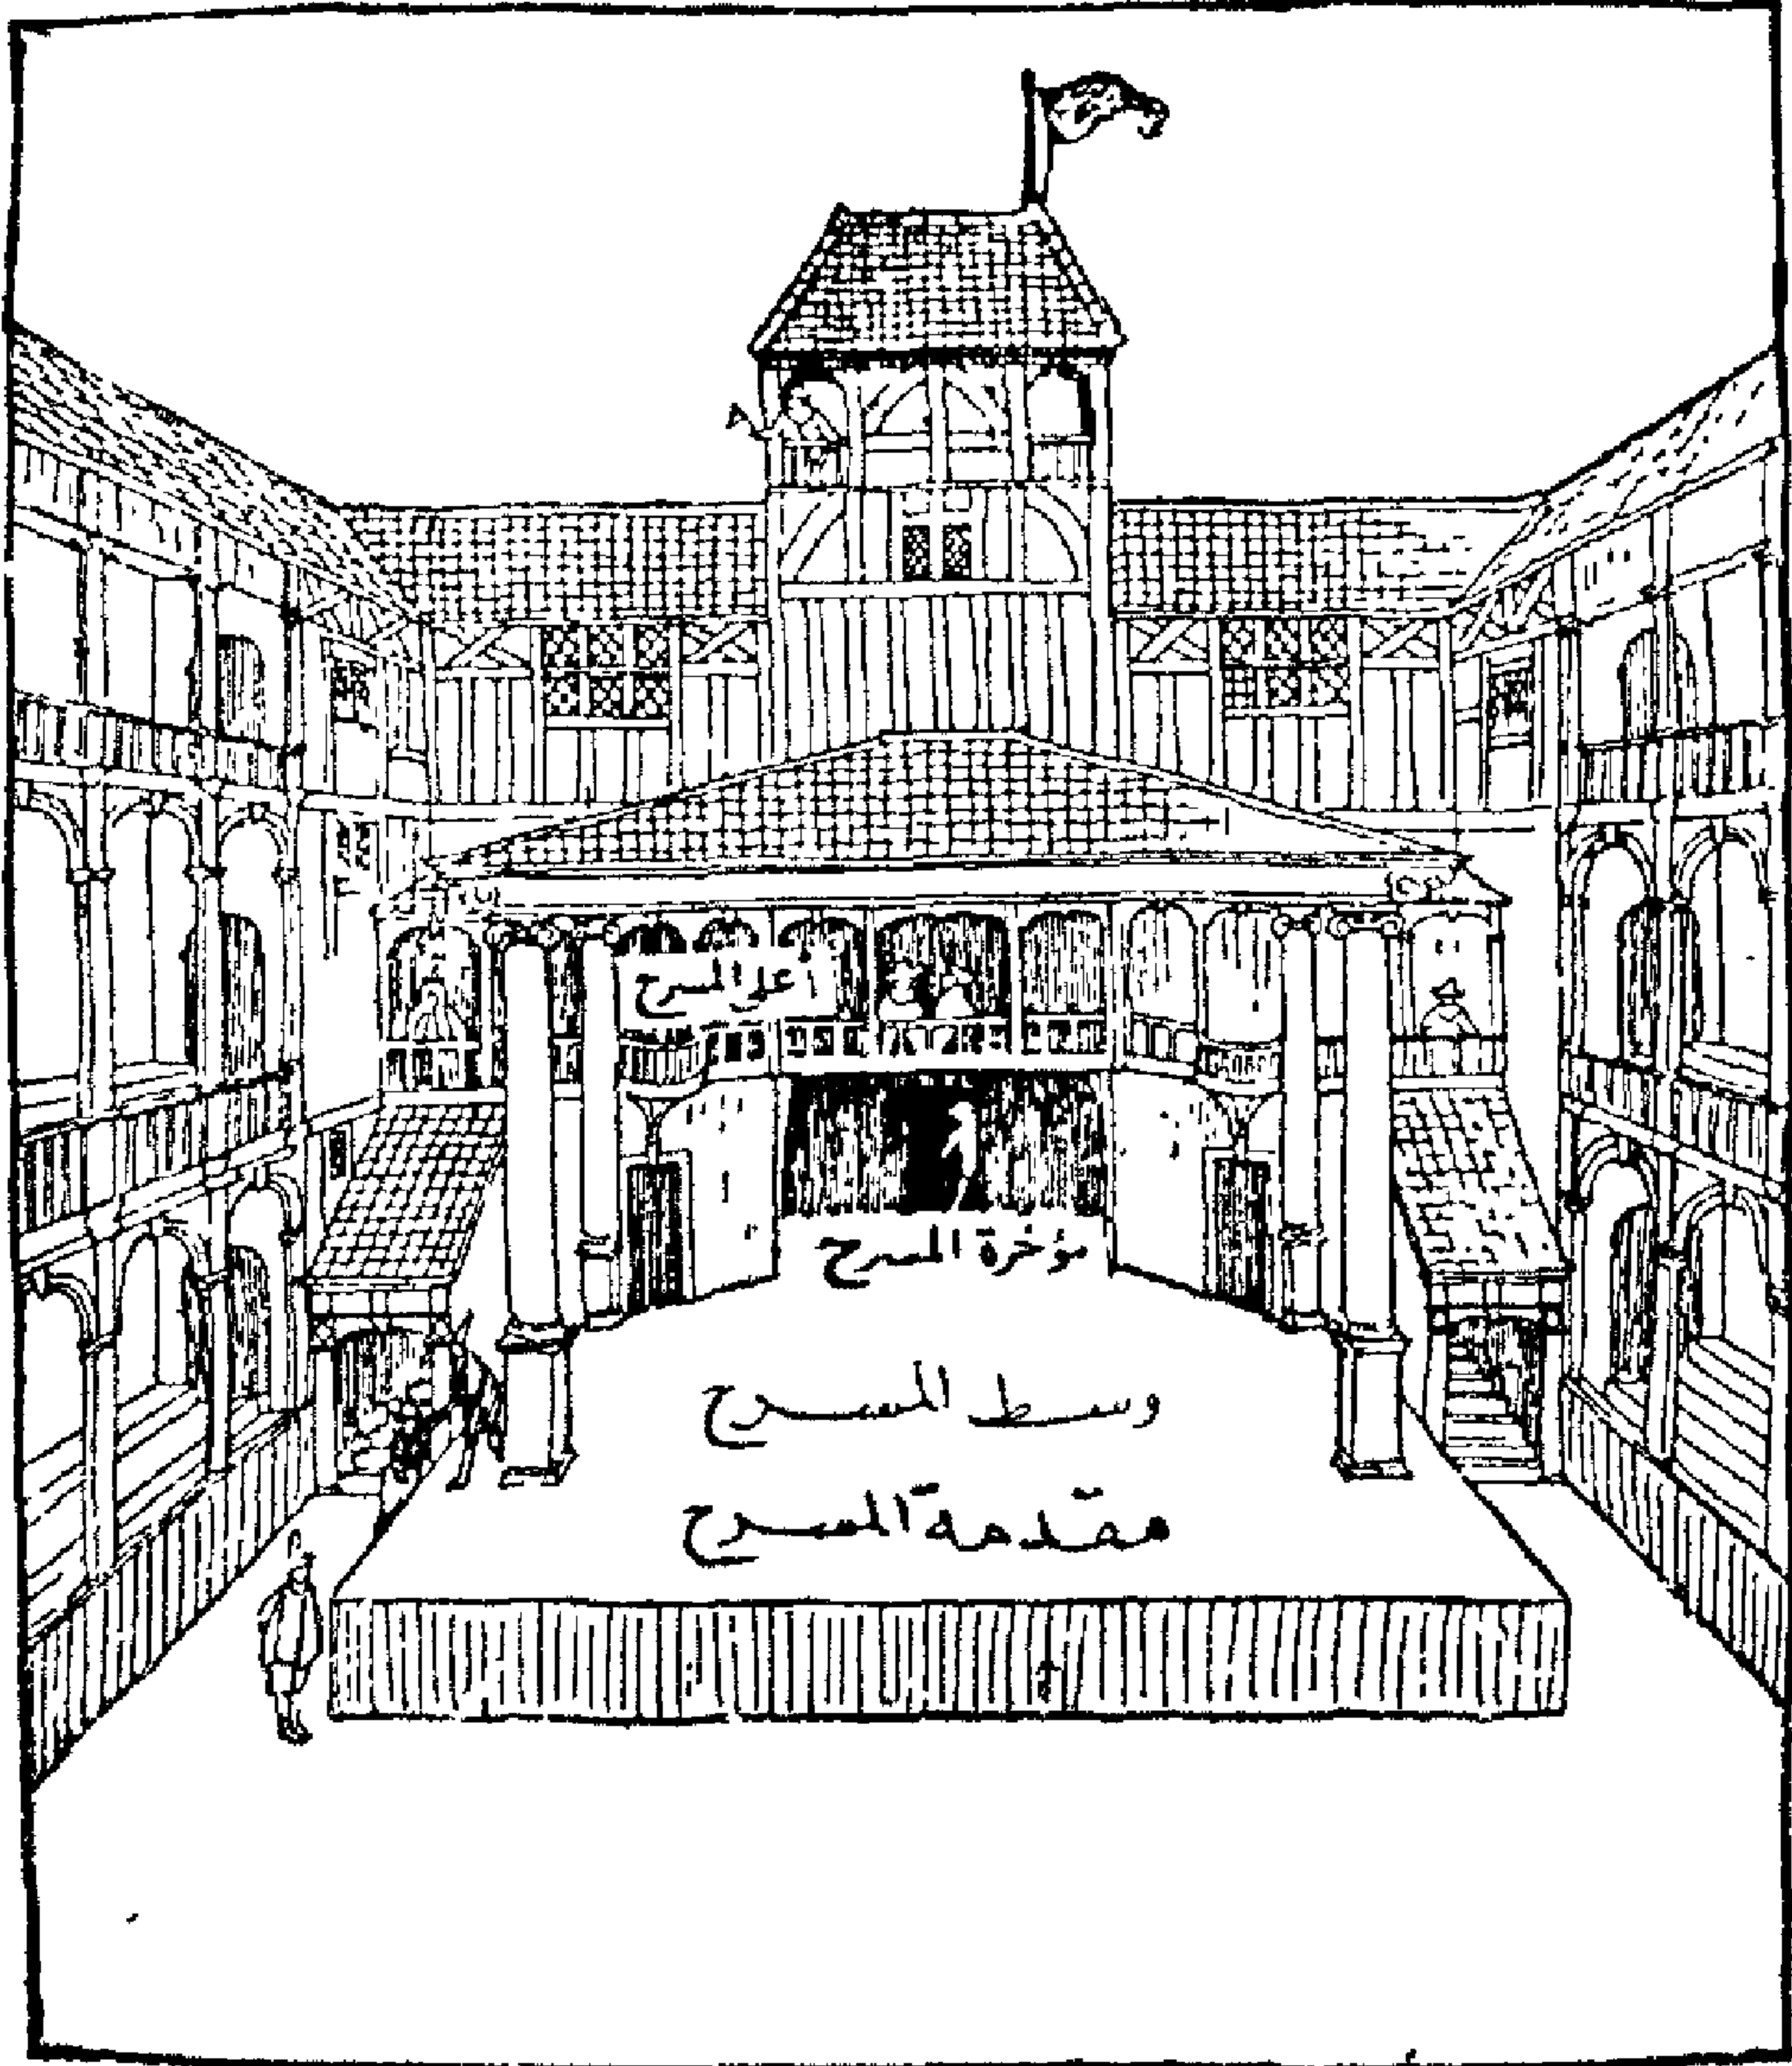 أعلى المسرح
مؤخرة المسرح
وسط المسرح
مقدمة المسرح